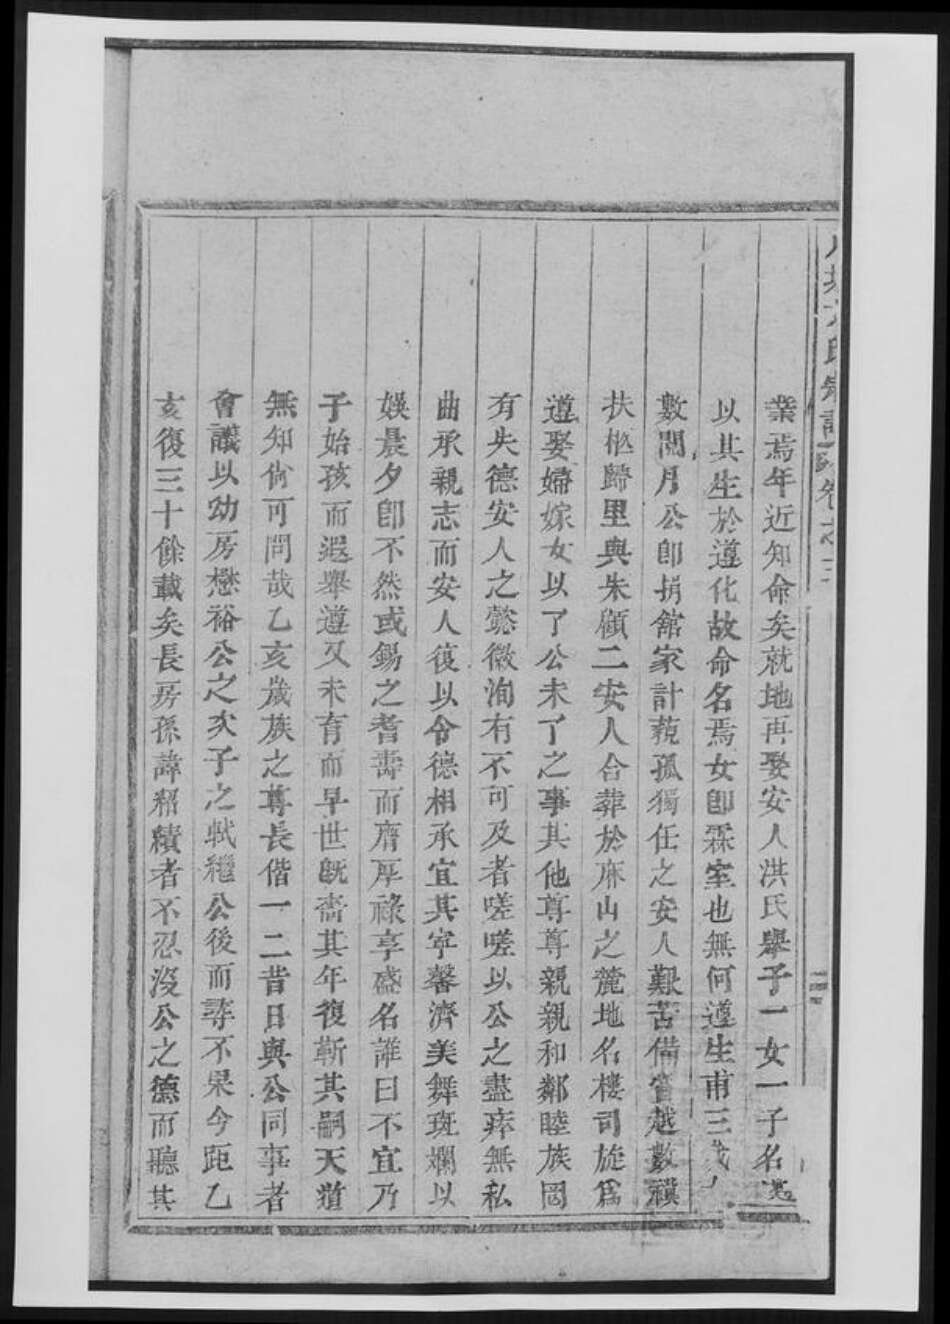 氏宗譜 卷之三
業焉年近知命矣就地再娶安人洪氏舉子一女一子名遵
以其生於遵化故命名焉女卽霖室也無何遵生甫三歲
數閱月公卽捐館家計藐孤獨任之安人艱苦備嘗越數禩
扶柩歸里與朱顧二安人合葬於麻山之麓地名樓司旋爲
遵娶婦嫁女以了公未了之事其他尊尊親親和鄰睦族罔
有失德安人之懿徽洵有不可及者嗟嗟以公之盡瘁無私
曲承親志而安人復以令德相承宜其宇馨濟美舞斑斕以
娛晨夕卽不然或錫之耆壽而膺厚祿享盛名誰曰不宜乃
子始孩而遐舉遵又未育而早世旣嗇其年復靳其嗣天道
無知尙可問哉乙亥歲族之尊長偕一二昔日與公同事者
會議以幼房懋裕公之次子之軾繼公後而尋不果今距乙
亥復三十餘載矣長房孫諱紹績者不忍沒公之德而聽其